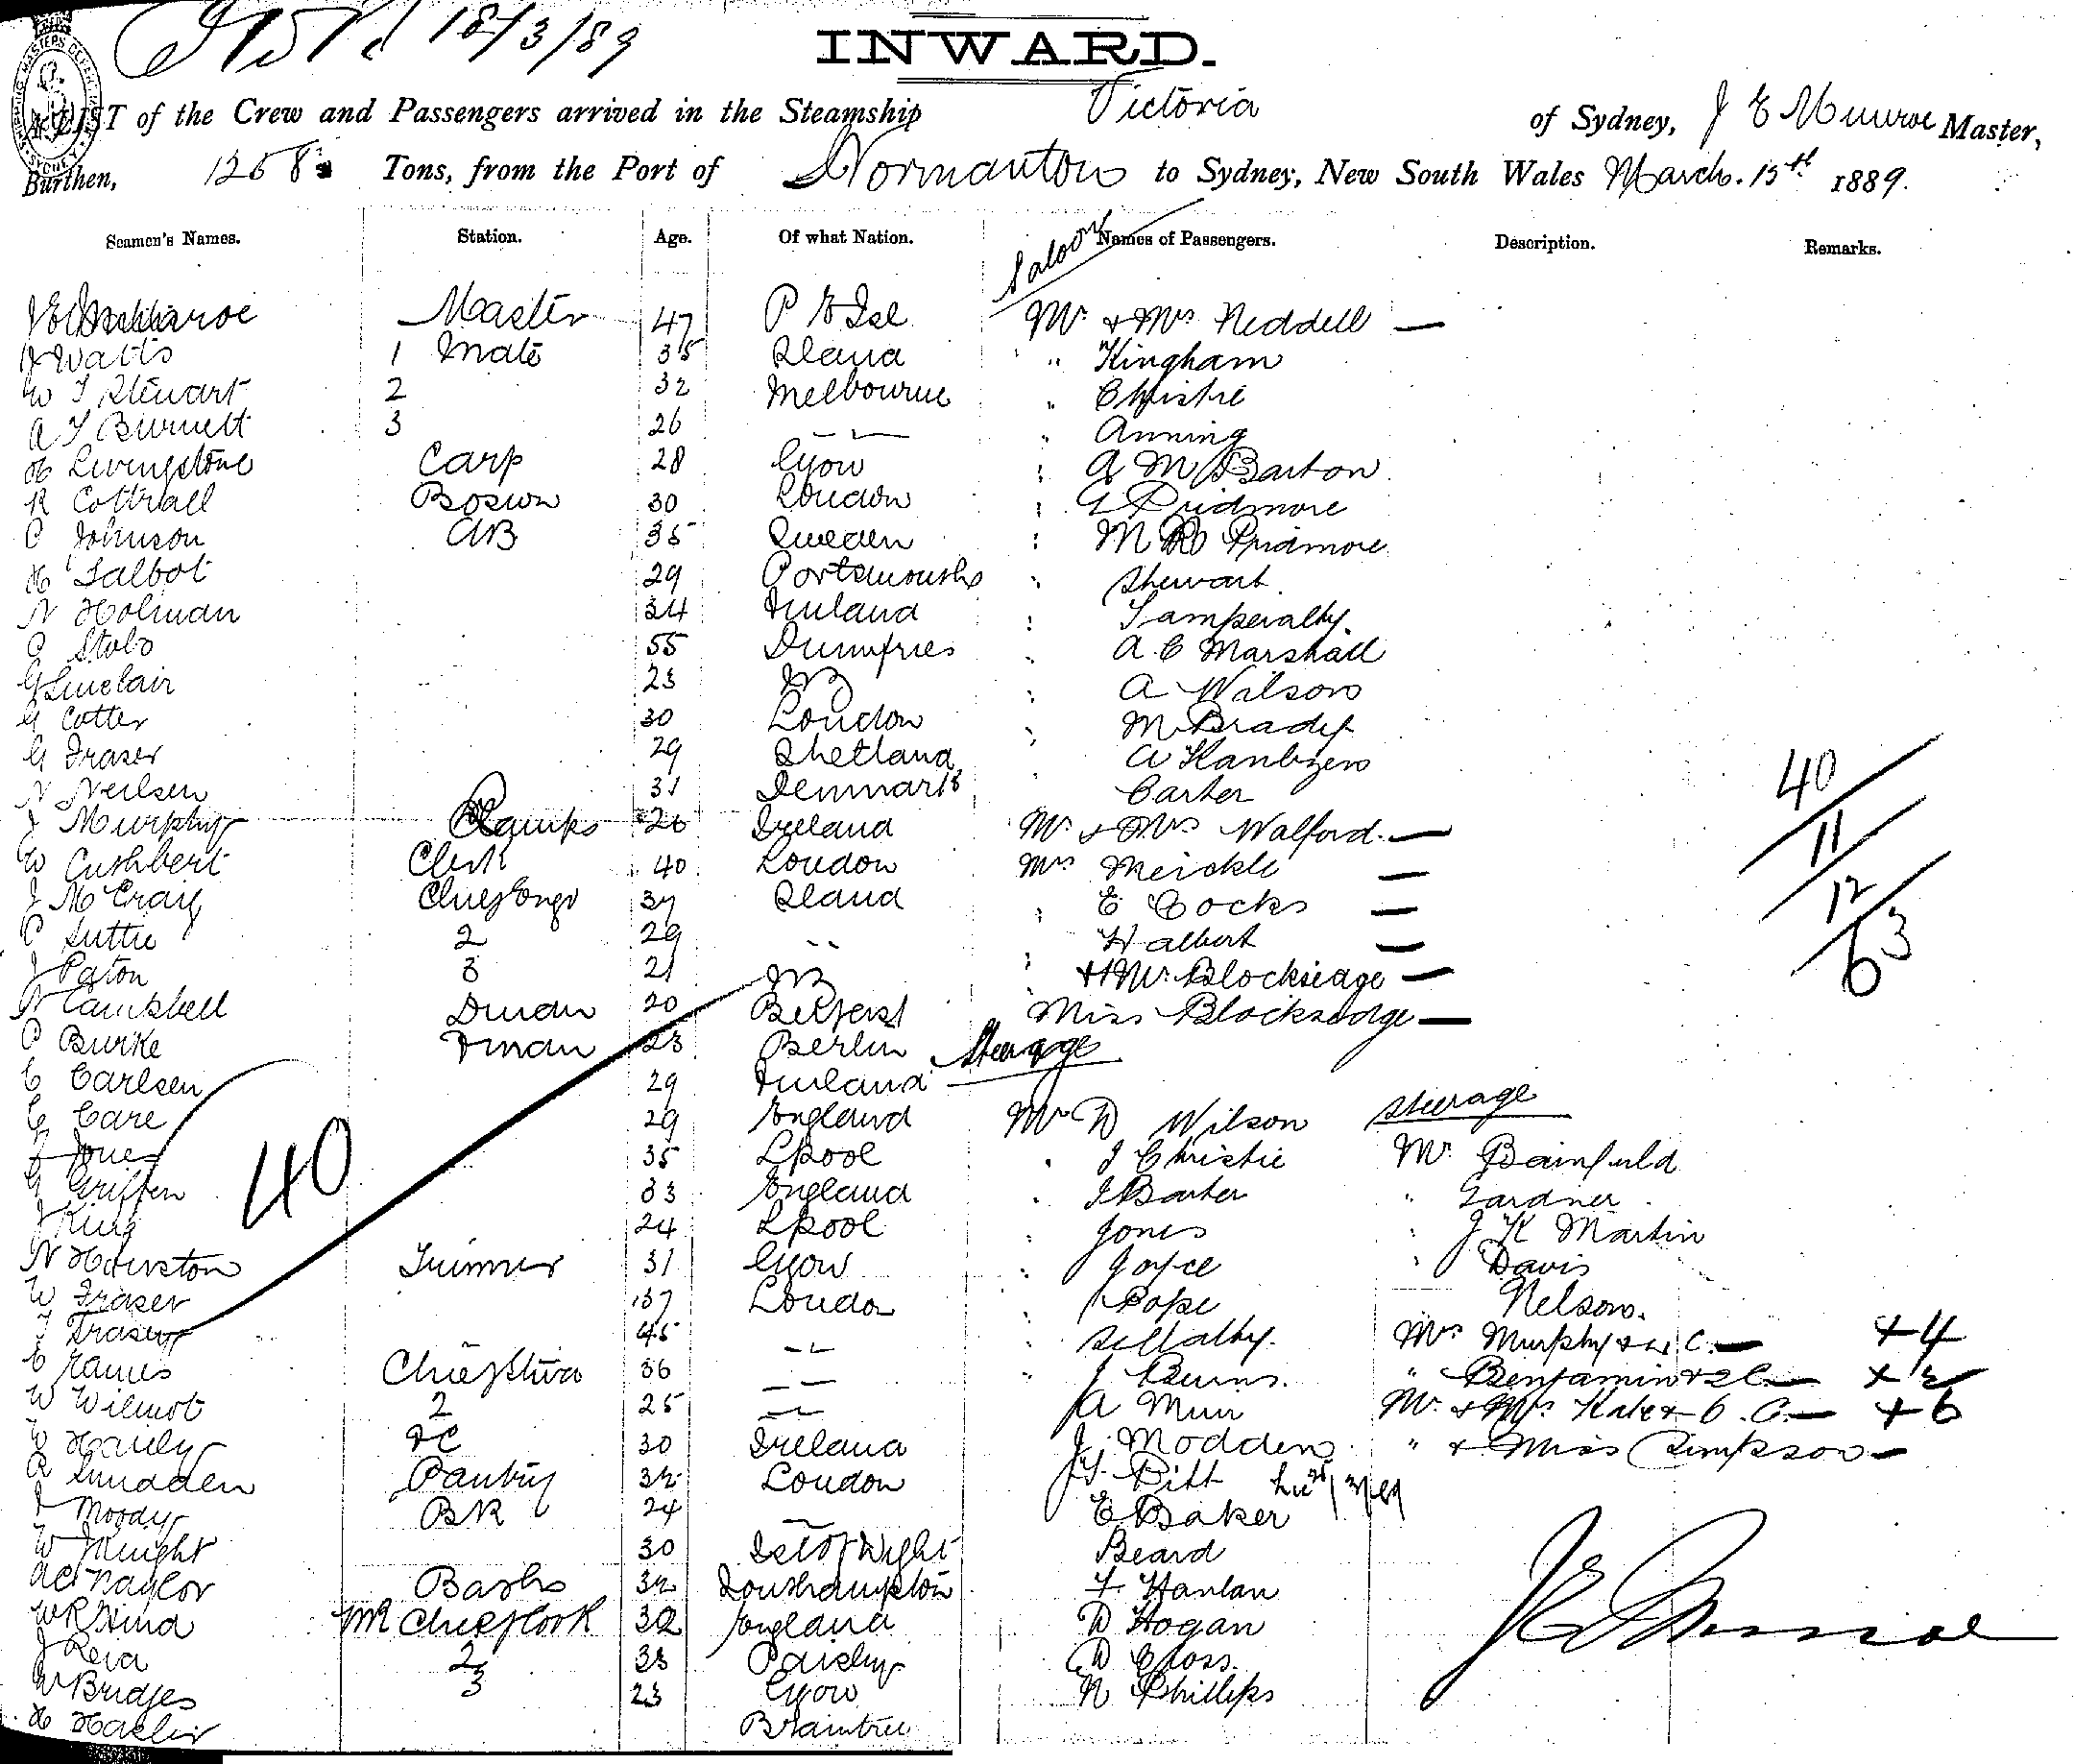 18/3/89
INWARD.
A LIST of the Crew and Passengers arrived in the Steamship Victoria of Sydney, J E Munroe Master,
Burthen, 1258 Tons, from the Port of Normanton to Sydney, New South Wales March. 15th 1889.
Seamen's Names. Station. Age. Of what Nation. Names of Passengers. Description. Remarks.
Saloon
Master 47 P E Isl Mr & Mrs Neddell —
Watts 1 Mate 35 " Kingham
W T Stewart 2 32 Melbourne " Christie
A T Burnett 3 26 " Anning
H Livingstone Carp 28 " A M Barton
R Cottrall Bosun 30 London " G Pridmore
C Johnson AB 35 Sweden " M R Pridmore
H Talbot 29 Portsmouth " Stewart
N Holman 34 Finland " Tamperalty.
C Stobo 55 Dumfries " A C Marshall
G Sinclair 23 " A Wilson
G Cotter 30 London " M Brady
G Fraser 29 Shetland " A
N Neilsen 31 Denmark " Carter
J Murphy Lamps 26 Ireland Mr & Mrs Walford. —
W Cushbert Clerk 40 London Mrs Meickle —
J McCraig Chief Engr 37 " E Cocks —
C Suttie 2 29 " " Halbert —
J Paton 3 21 " & Mr. Blocksidge —
N Campbell Dman 20 Belfast Miss Blocksedge —
C Burke Fman 23 Berlin Steerage
C Carlsen 29 Finland
G Care 29 England Mr D Wilson Steerage
J Jones 35 Lpool " J Christie Mr. Bainfield
G Griffen 33 England " J Barter " Gardner
J King 24 Lpool " Jones " J K Martin
N Houston Trimmer 31 " Joyce " Davis
W Fraser 37 London " Pope Nelson.
T Fraser 45 " Mrs Murphy & 4 C. — +4
C Eames Chief Stwd 36 " J Burns. " Benjamin & 2 C — +2
W Wilmot 2 25 A Muir Mr. & Mrs. Kale & 6. C. — +6
Hardy FC 30 Ireland J. Modden " & Miss Simpson —
R Snudden Pantry 32 London J. Pitt
J Moody BR 24 E Baker
W Knight 30 Isle of Wight Beard
A C Naylor 32 Southampton F. Hanlan
W R Hind Chief Cook 32 England D Hogan
J Reid 2 33 Paisley D Cross.
W Bridges 3 23 N Phillips
H Braintree
40
40
11
12
63
J E Munroe